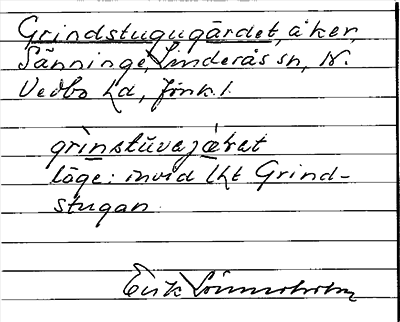 Grindstugugärdet, åker,
Sänninge, Linderås sn, N.
Vedbo hd, Jönk. l.
grinstuvajæ̀ret
läge: invid lht Grind-
stugan
Erik Lönnerholm